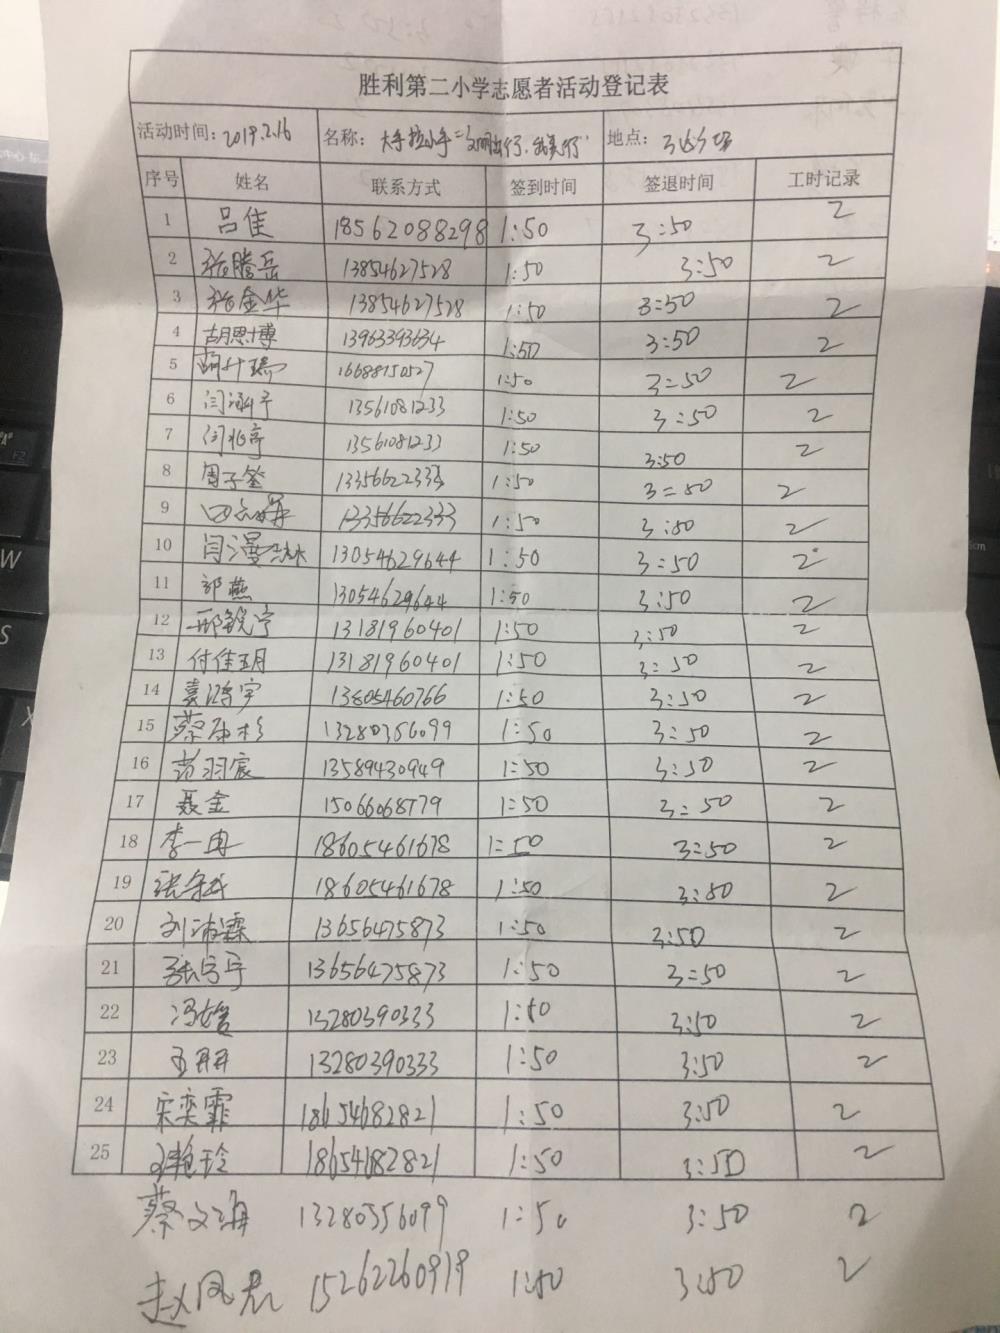 胜利第二小学志愿者活动登记表
活动时间: 2019.2.16 名称: 大手拉小手"文明出行、我先行" 地点:
序号 姓名 联系方式 签到时间 签退时间 工时记录
1 吕佳 18562088298 1:50 3:50 2
2 张腾岳 13854627528 1:50 3:50 2
3 张金华 13854627528 1:50 3:50 2
4 胡思博 13963393634 1:50 3:50 2
5 16688150527 1:50 3:50 2
6 闫涵予 13561081233 1:50 3:50 2
7 闫兆亭 13561081233 1:50 3:50 2
8 周子筌 13356622333 1:50 3:50 2
9 13356622333 1:50 3:50 2
10 闫漫 13054629644 1:50 3:50 2
11 郭燕 13054629644 1:50 3:50 2
12 邢锐宁 13181960401 1:50 3:50 2
13 付佳玥 13181960401 1:50 3:50 2
14 袁鸿宇 13805460766 1:50 3:50 2
15 蔡 杉 13280356099 1:50 3:50 2
16 羽宸 13589430949 1:50 3:50 2
17 聂金 15066068779 1:50 3:50 2
18 李一冉 18605461678 1:50 3:50 2
19 张 18605461678 1:50 3:50 2
20 刘沛霖 13656475873 1:50 3:50 2
21 张 13656475873 1:50 3:50 2
22 冯 13280390333 1:50 3:50 2
23 13280390333 1:50 3:50 2
24 宋奕霏 18654682821 1:50 3:50 2
25 艳玲 18654682821 1:50 3:50 2
蔡文海 13280356099 1:50 3:50 2
赵凤君 15262260919 1:50 3:50 2